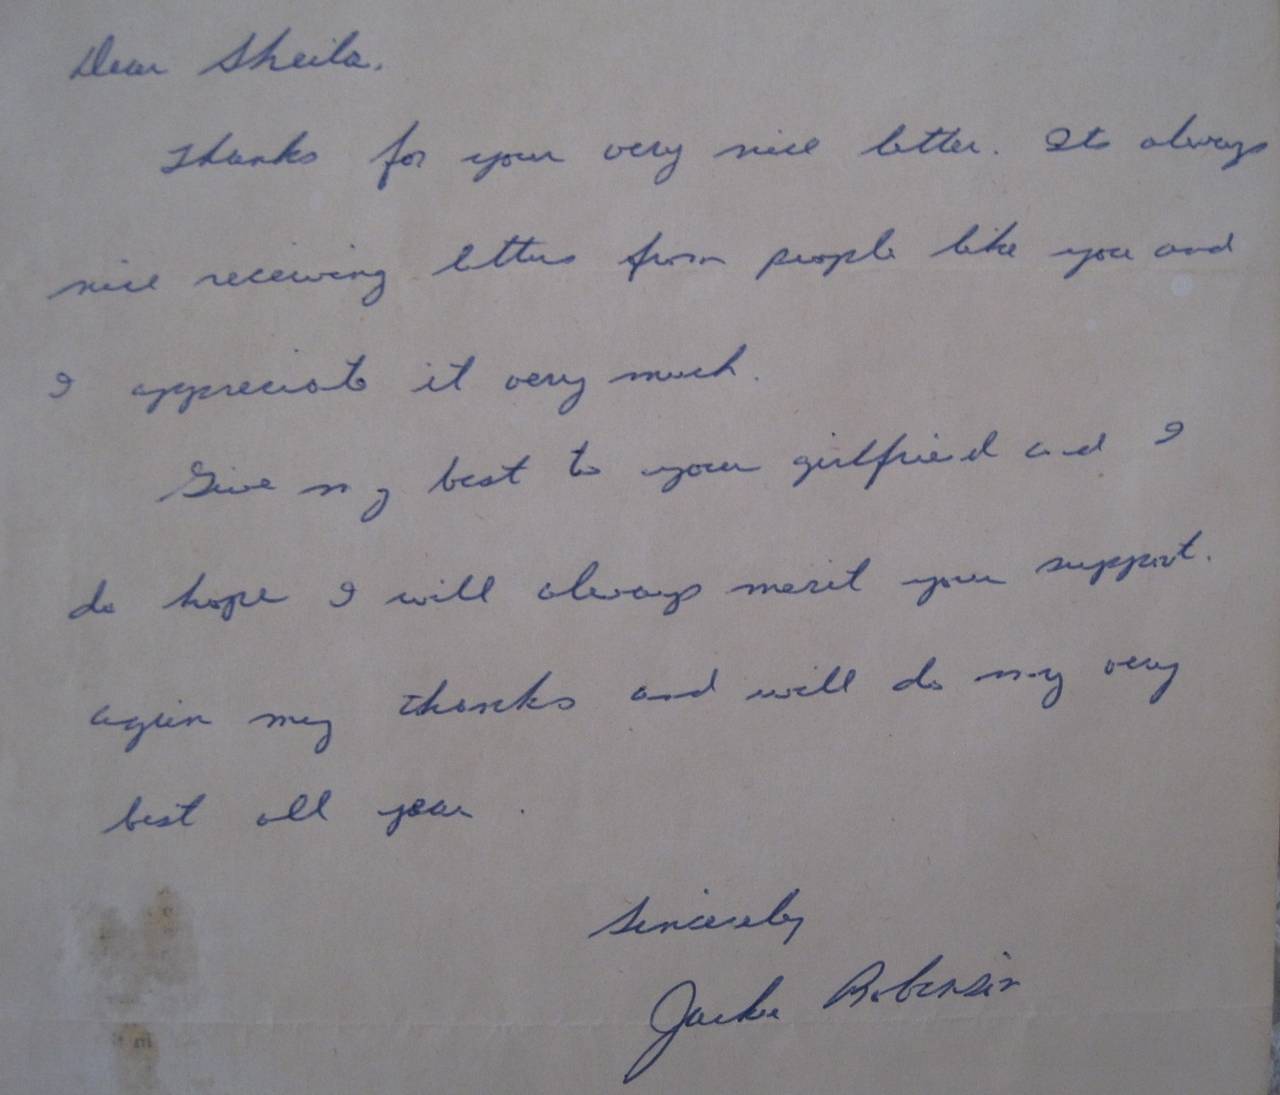 Dear Sheila,
Thanks for your very nice letter. Its always
nice receiving letters from people like you and
I appreciate it very much.
Give my best to your girlfriend and I
do hope I will always merit your support.
again my thanks and will do my very
best all year.
Sincerely
Jackie Robinson